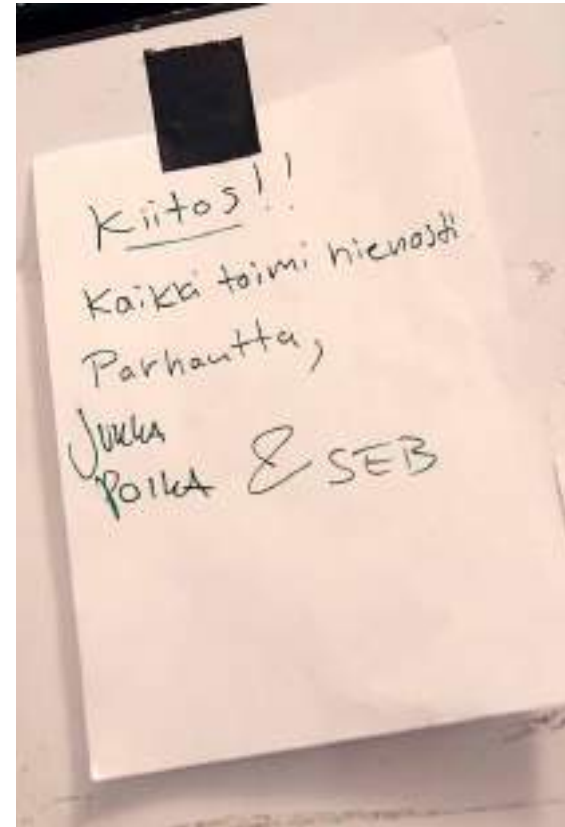 Kiitos!!
Kaikki toimi hienosti
Parhautta,
JUKKA
POIKA & SEB